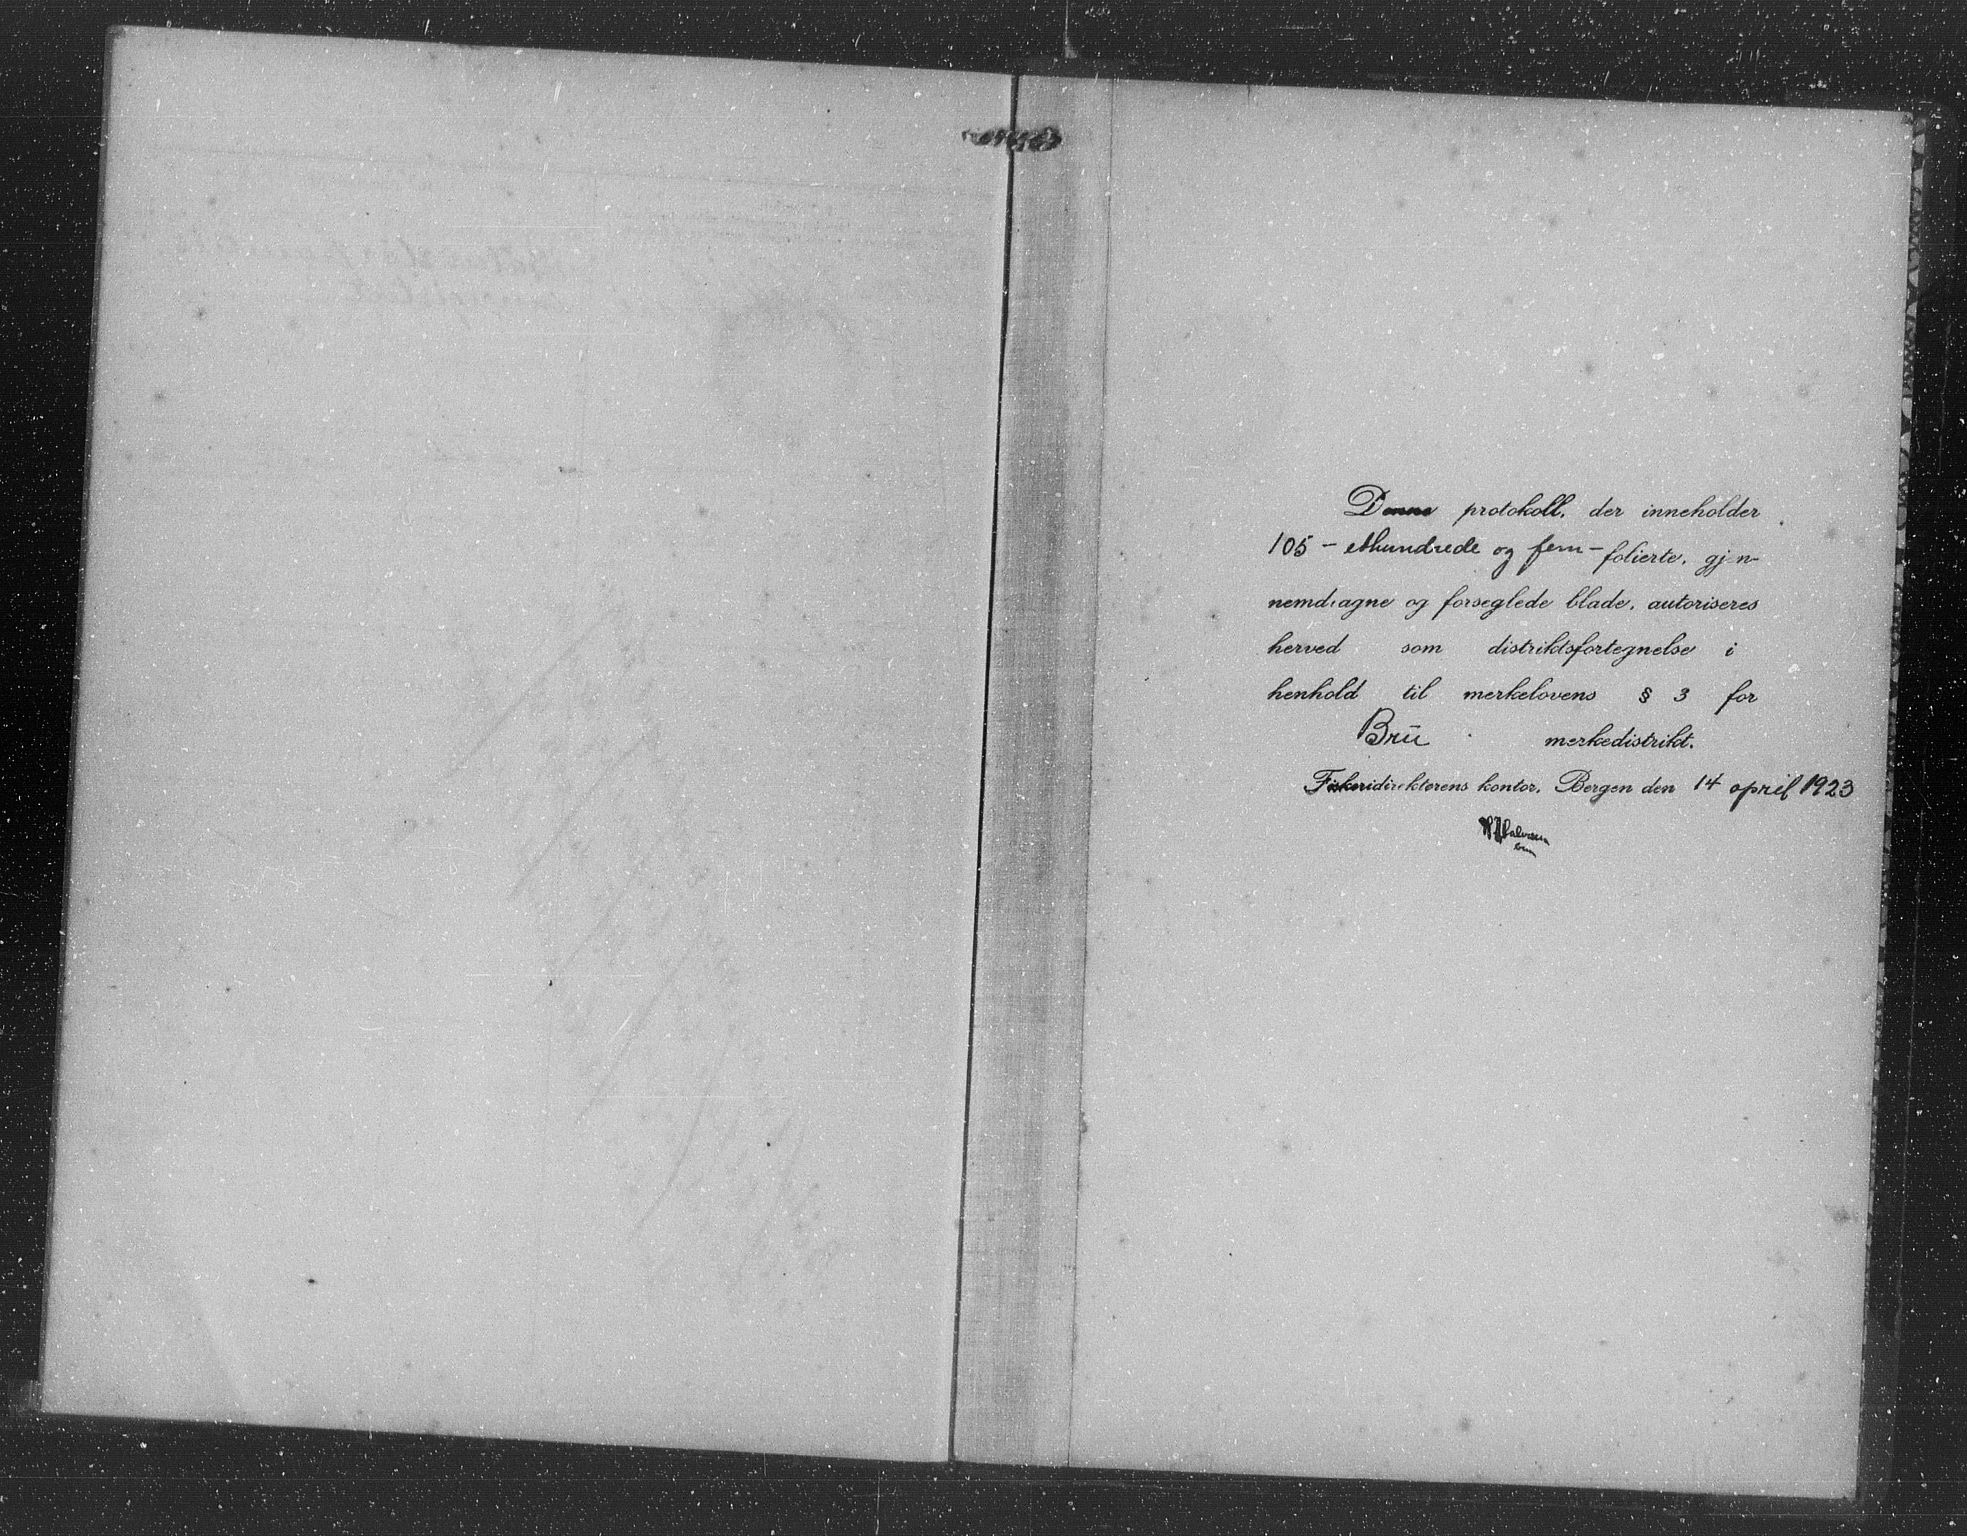 Denne protokoll, der inneholder
105 - ethundrede og fem - folierte, gjen-
nemdragne og forseglede blade, autoriseres
herved som distriktsfortegnelse i
henhold til merkelovens § 3 for
Bru merkedistrikt.
Fiskeridirektørens kontor, Bergen den 14 april 1923